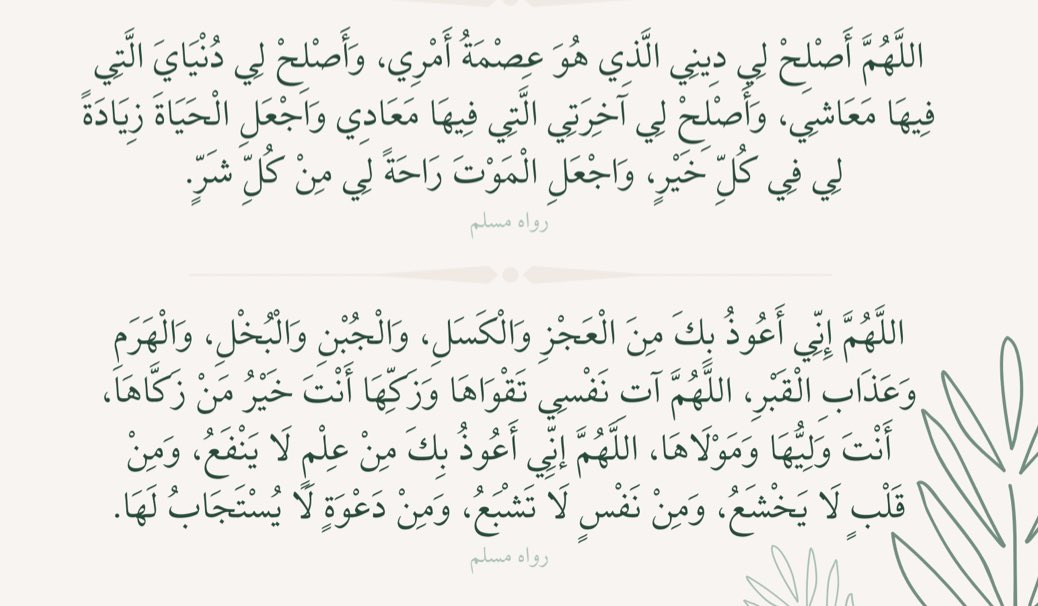 اللَّهُمَّ أَصْلِحْ لِي دِينِي الَّذِي هُوَ عِصْمَةُ أَمْرِي، وَأَصْلِحْ لِي دُنْيَايَ الَّتِي
فِيهَا مَعَاشِي، وَأَصْلِحْ لِي آخِرَتِي الَّتِي فِيهَا مَعَادِي وَاجْعَلِ الْحَيَاةَ زِيَادَةً
لِي فِي كُلِّ خَيْرٍ، وَاجْعَلِ الْمَوْتَ رَاحَةً لِي مِنْ كُلِّ شَرٍّ.
رواه مسلم
اللَّهُمَّ إِنِّي أَعُوذُ بِكَ مِنَ الْعَجْزِ وَالْكَسَلِ، وَالْجُبْنِ وَالْبُخْلِ، وَالْهَرَمِ
وَعَذَابِ الْقَبْرِ، اللَّهُمَّ آت نَفْسِي تَقْوَاهَا وَزَكِّهَا أَنْتَ خَيْرُ مَنْ زَكَّاهَا،
أَنْتَ وَلِيُّهَا وَمَوْلَاهَا، اللَّهُمَّ إنِّي أَعُوذُ بِكَ مِنْ عِلْمٍ لَا يَنْفَعُ، وَمِنْ
قَلْبٍ لَا يَخْشَعُ، وَمِنْ نَفْسٍ لَا تَشْبَعُ، وَمِنْ دَعْوَةٍ لَا يُسْتَجَابُ لَهَا.
رواه مسلم